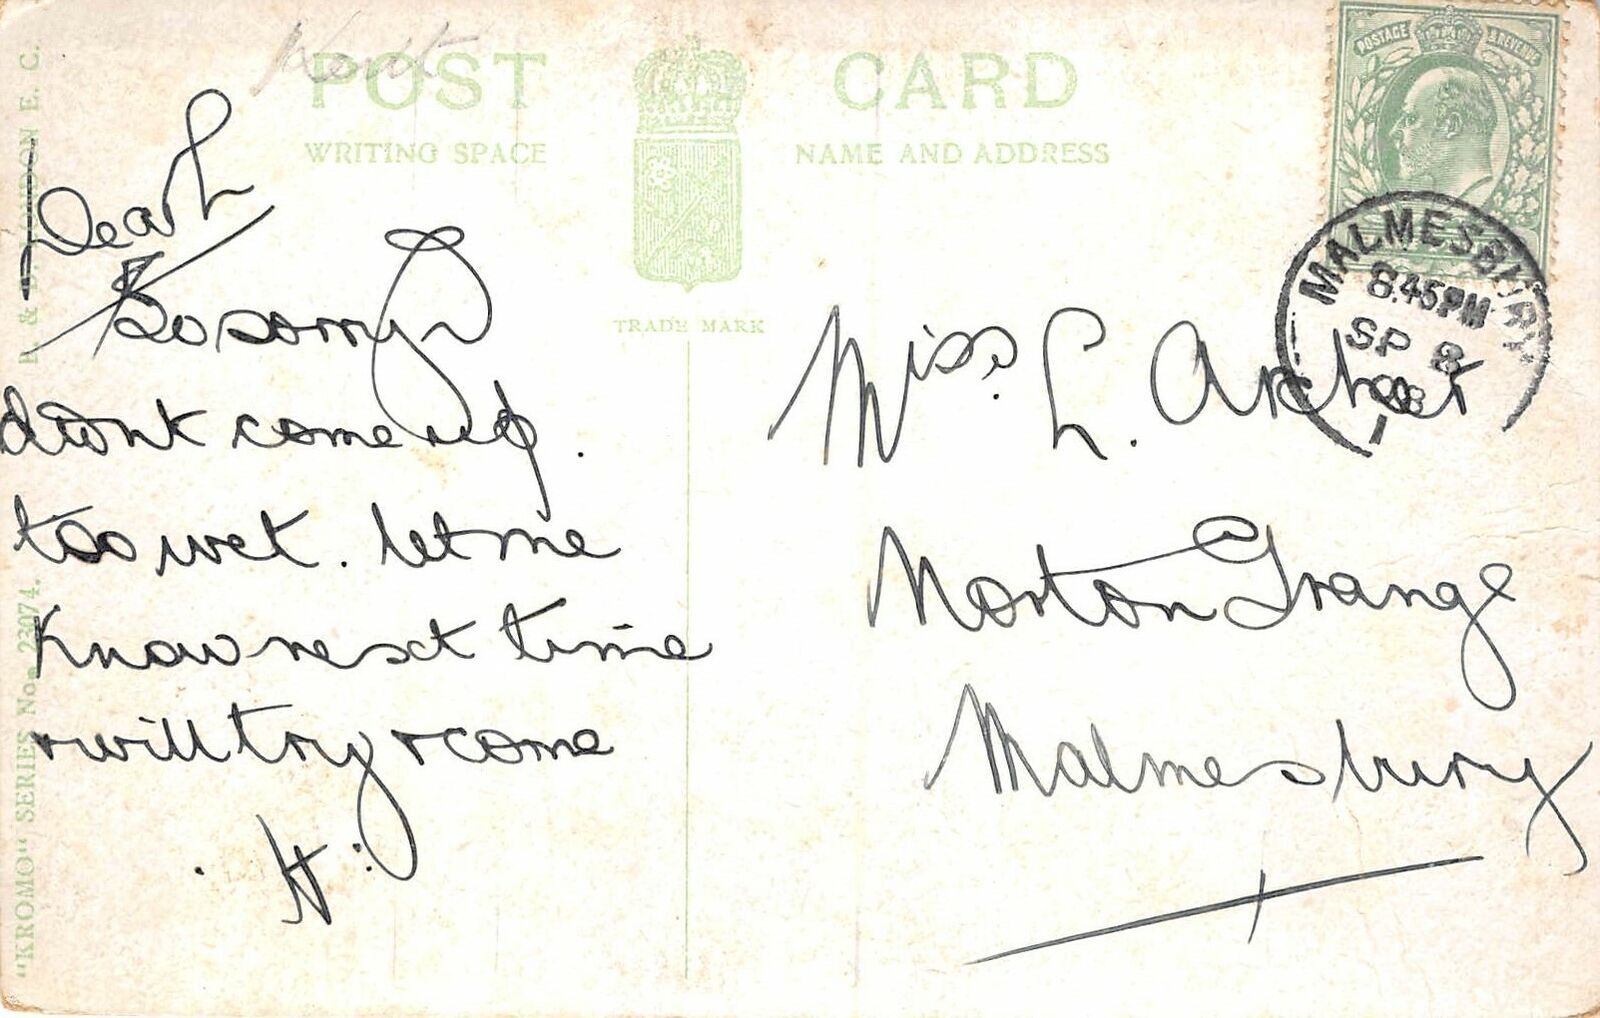 Kent
POST CARD
WRITING SPACE
NAME AND ADDRESS
TRADE MARK
"KROMO" SERIES No. 23074.
E. C.
POSTAGE & REVENUE
MALMESBURY
8.45PM
SP 8
08
Dear L
So sorry I
didnt come up.
too wet. let me
Know next time
& will try & come
H:
Miss. L. Archer
Norton Grange
Malmesbury